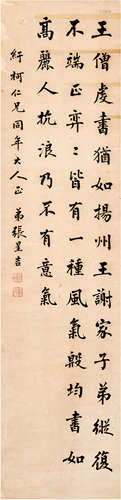 王僧虔書猶如揚州王謝家子弟縱復
不端正弈〻皆有一種風氣殷均書如
高麗人抗浪乃不有意氣
紆柯仁兄同年大人正 弟張星吉